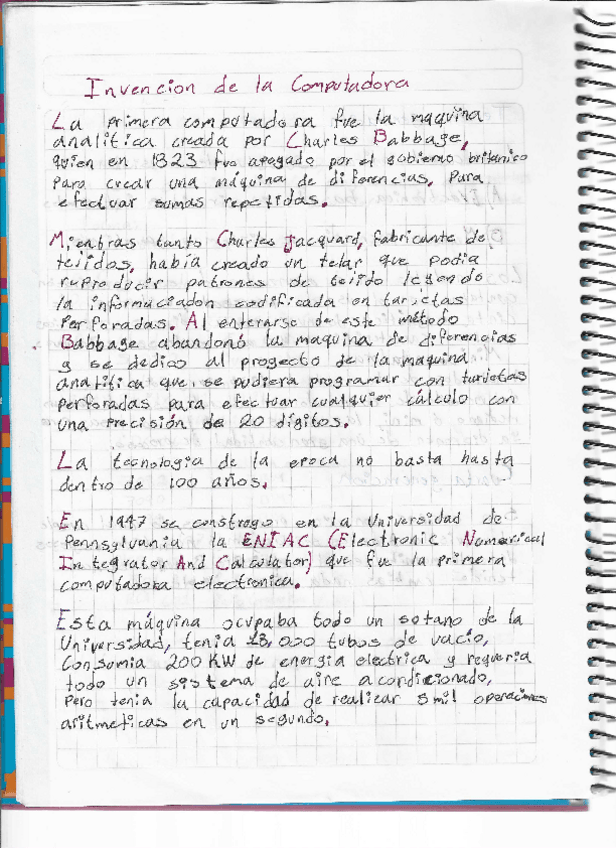 Invencion de la Computadora
La primera computadora fue la maquina
analitica creada por Charles Babbage,
quien en 1823 fue apogado por el gobierno britanico
para crear una máquina de diferencias, para
efectuar sumas repetidas.
Mientras tanto Charles Jacquard, fabricante de
tejidos, había creado un telar que podia
reproducir patrones de tejido leyendo
la informaciadon codificada en tarjetas
perforadas. Al enterarse de este método
Babbage abandonó la maquina de diferencias
y se dedico al proyecto de la maquina
analitica que, se pudiera programar con tarjetas
perforadas para efectuar cualquier cálculo con
una precisión de 20 dígitos.
La tecnologia de la epoca no basta hasta
dentro de 100 años.
En 1947 se construyo en la Universidad de
Pennsylvania la ENIAC (Electronic Numerical
Integrator And Calculator) que fue la primera
computadora electronica.
Esta máquina ocupaba todo un sotano de la
Universidad, tenia 18,000 tubos de vacio,
Consumia 200 KW de energia electrica y requeria
todo un sistema de aire acondicionado,
pero tenia la capacidad de realizar 5 mil operaciones
aritmeticas en un segundo.